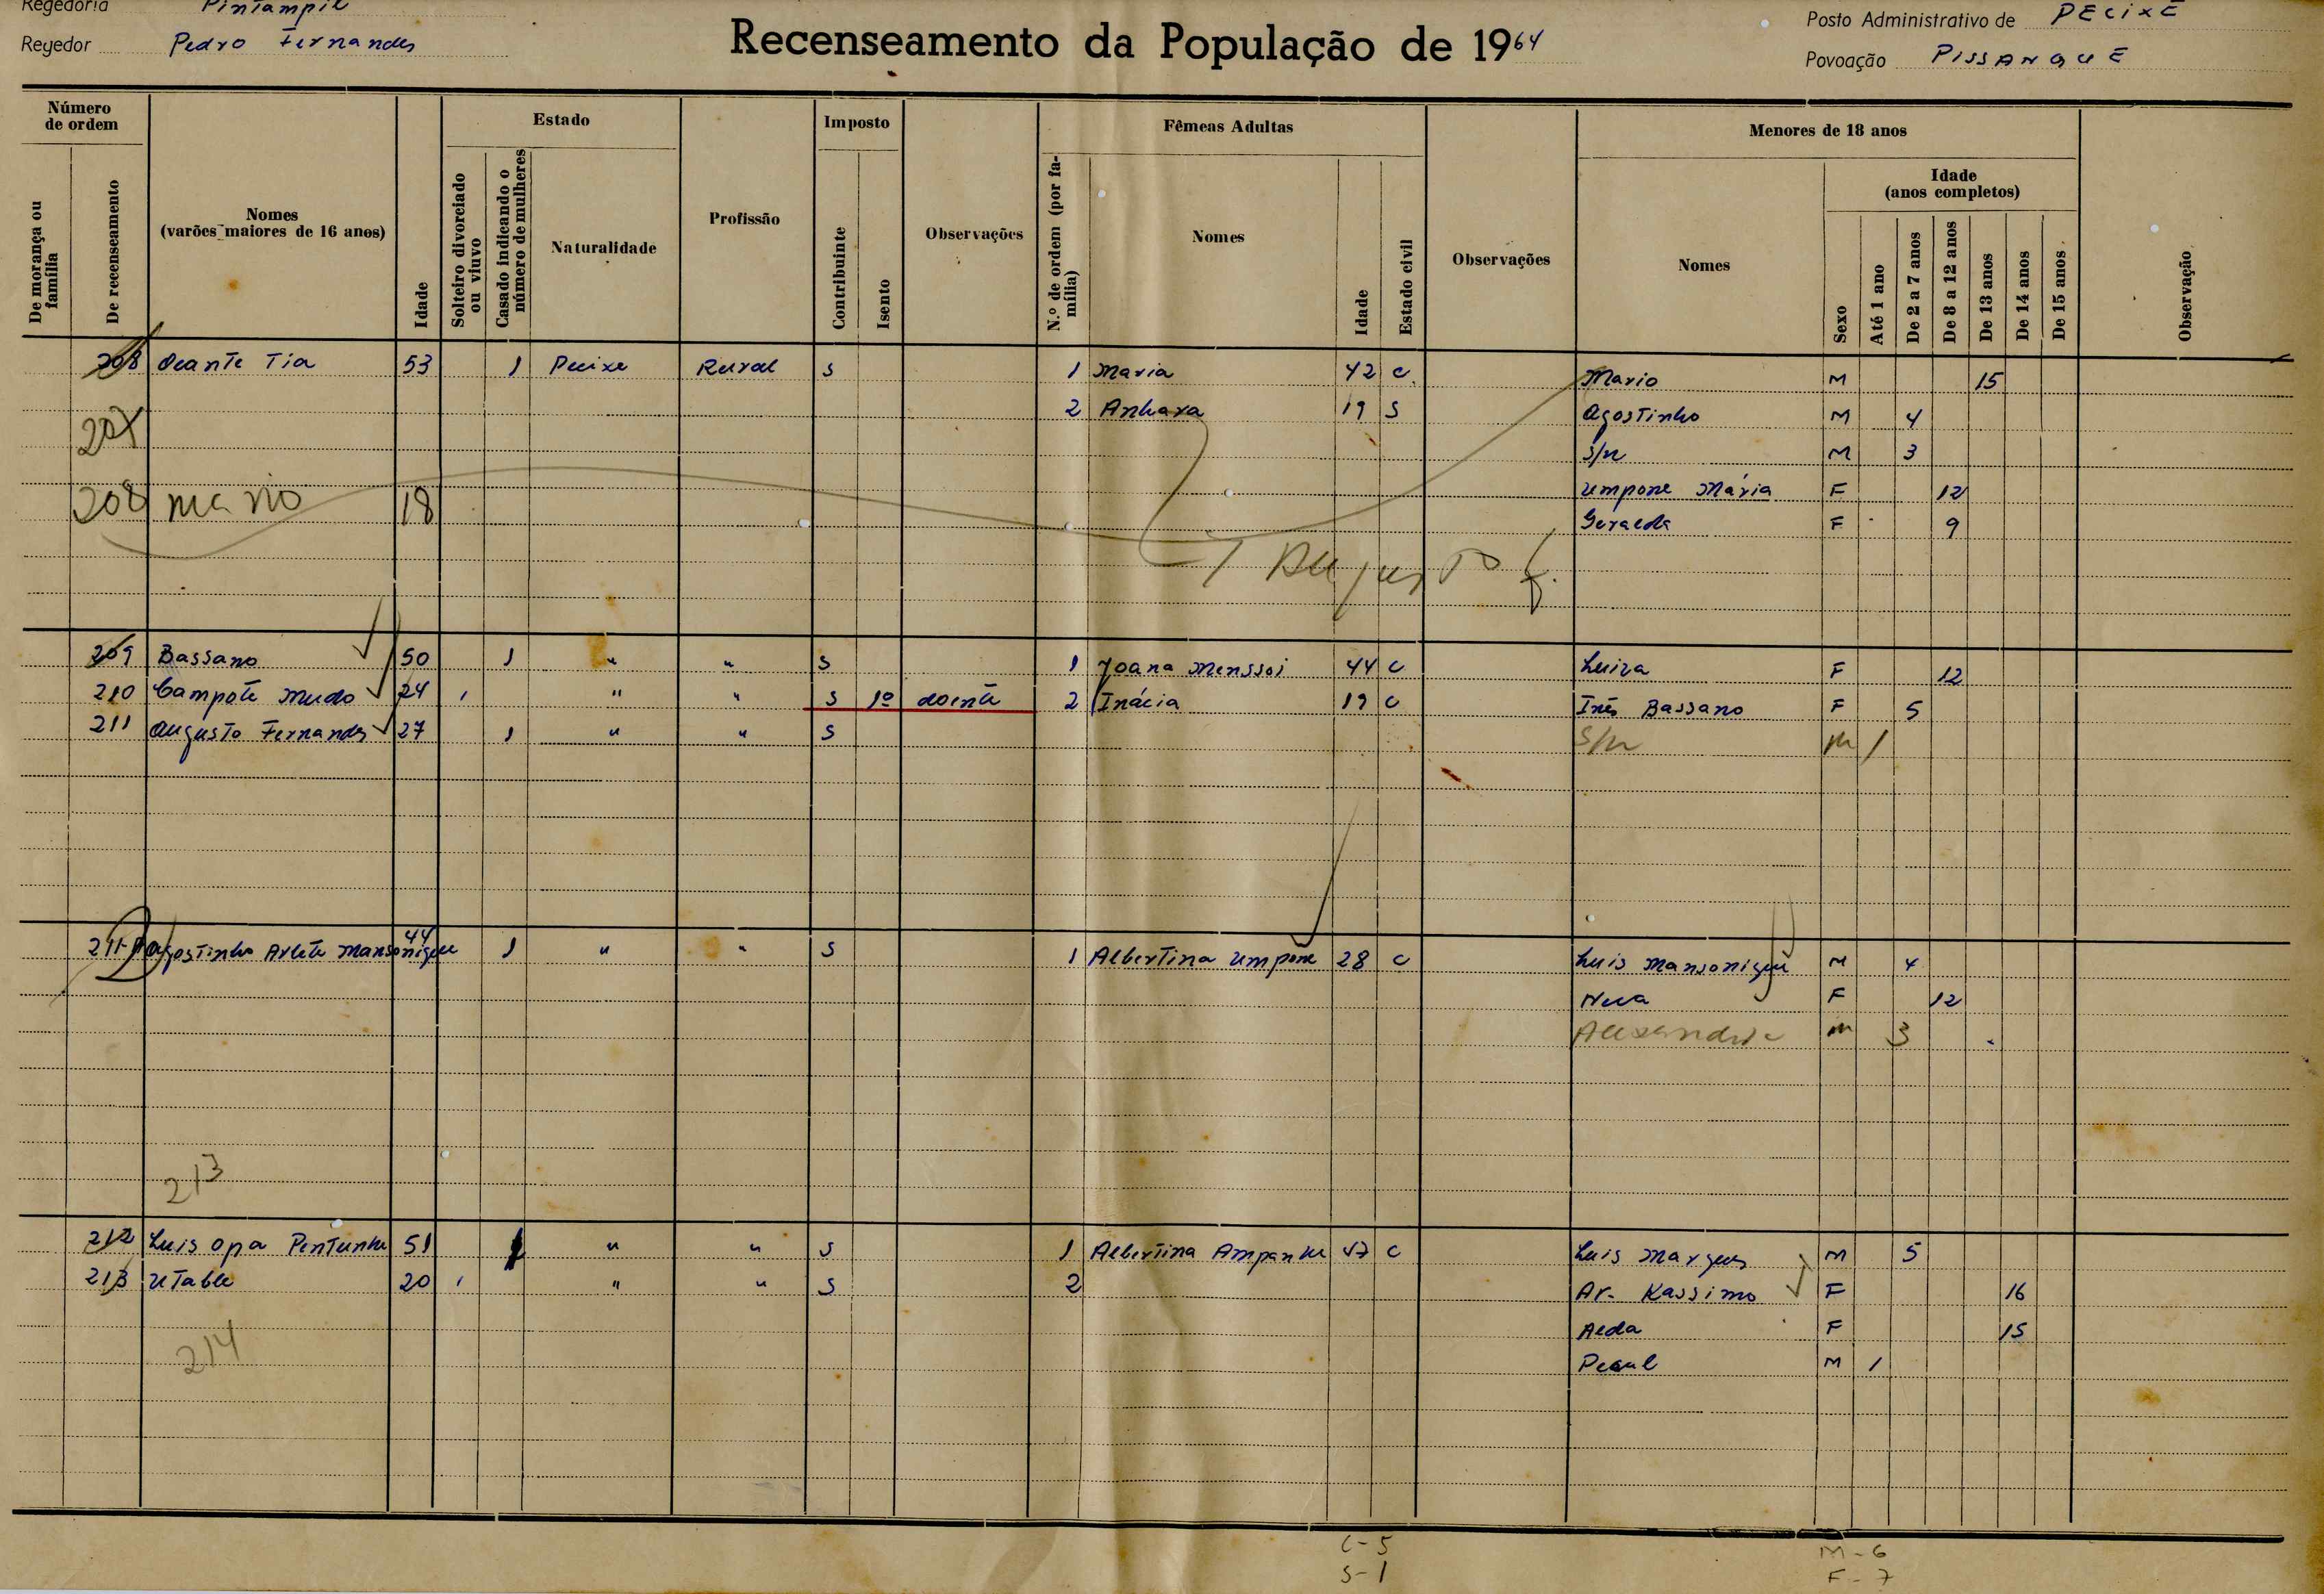 Regedoria Pintampil
Regedor Pedro Fernandes
Recenseamento da População de 1964
Posto Administrativo de PECIXE
Povoação PISSANGUE
Número de ordem
De morança ou família
De recenseamento
Nomes (varões maiores de 16 anos)
Idade
Estado
Solteiro divorciado ou viuvo
Casado indicando o número de mulheres
Naturalidade
Profissão
Imposto
Contribuinte
Isento
Observações
Fêmeas Adultas
N.º de ordem (por família)
Nomes
Idade
Estado civil
Observações
Menores de 18 anos
Nomes
Sexo
Idade (anos completos)
Até 1 ano
De 2 a 7 anos
De 8 a 12 anos
De 13 anos
De 14 anos
De 15 anos
Observação
208 Tia 53 1 Pecixe Rural S 1 Maria 42 C Mario M 15
2 Anhara 19 S Agostinho M 4
207
S/n M 3
208 mario 18 Umpone Mária F 12
Geralda F 9
Augusto F.
209 Bassano 50 1 " " S 1 Joana Menssoi 44 C Luiza F 12
210 Campote Mudo 24 1 " " S 1º doente 2 Inácia 19 C Inês Bassano F 5
211 Augusto Fernandes 27 1 " " S S/n M 1
44
211-A Agostinho Arlete Mansonique 1 " " S 1 Albertina Umpone 28 C Luis Mansonique M 4
F 12
Alexandre M 3
213
212 Luis Opa 51 1 " " S 1 Albertina Ampanhe 47 C Luis Marques M 5
213 Utable 20 1 " " S 2 Ar. Kassimo F 16
Alda F 15
214
M 1
C-5
S-1
M-6
F-7